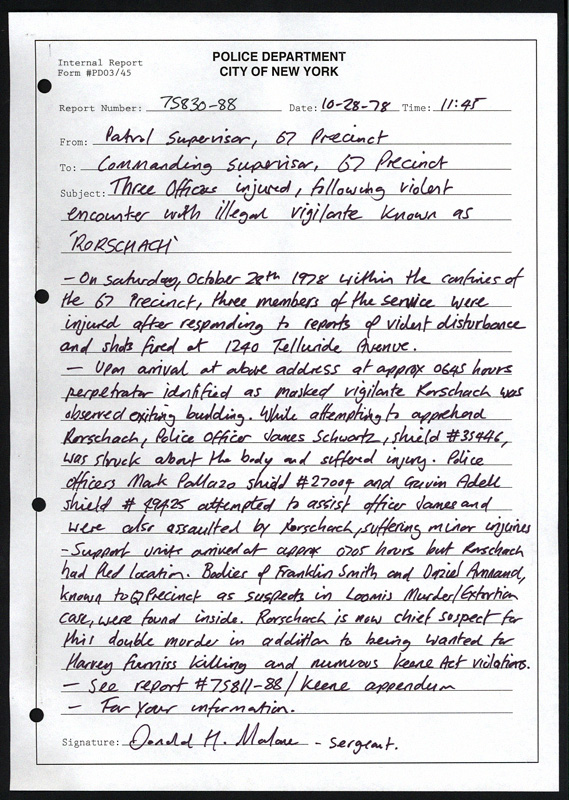 Internal Report
Form #PD03/45
POLICE DEPARTMENT
CITY OF NEW YORK
Report Number: 75830-88 Date: 10-28-78 Time: 11:45
From: Patrol Supervisor, 67 Precinct
To: Commanding Supervisor, 67 Precinct
Subject: Three Officers injured, following violent
encounter with illegal vigilante known as
'RORSCHACH'
- On saturday, October 28th 1978 within the confines of
the 67 Precinct, three members of the service were
injured after responding to reports of violent disturbance
and shots fired at 1240 Telluride Avenue.
- Upon arrival at above address at approx 0645 hours
perpetrator identified as masked vigilante Rorschach was
observed exiting building. While attempting to apprehend
Rorschach, Police Officer James Schwartz, shield #35446,
was struck about the body and suffered injury. Police
officers Mark Pallazo shield #27004 and Gavin Adell
shield # 49425 attempted to assist officer James and
were also assaulted by Rorschach, suffering minor injuries
- Support units arrived at approx 0705 hours but Rorschach
had fled location. Bodies of Franklin Smith and Daziel
known to Precinct as suspects in Loomis Murder/Extortion
case, were found inside. Rorschach is now chief suspect for
this double murder in addition to being wanted for
Harvey Furniss killing and numerous Keene Act violations.
- See report #75811-88/Keene appendum
- For Your information.
Signature: Donald H. Malone - sergeant.